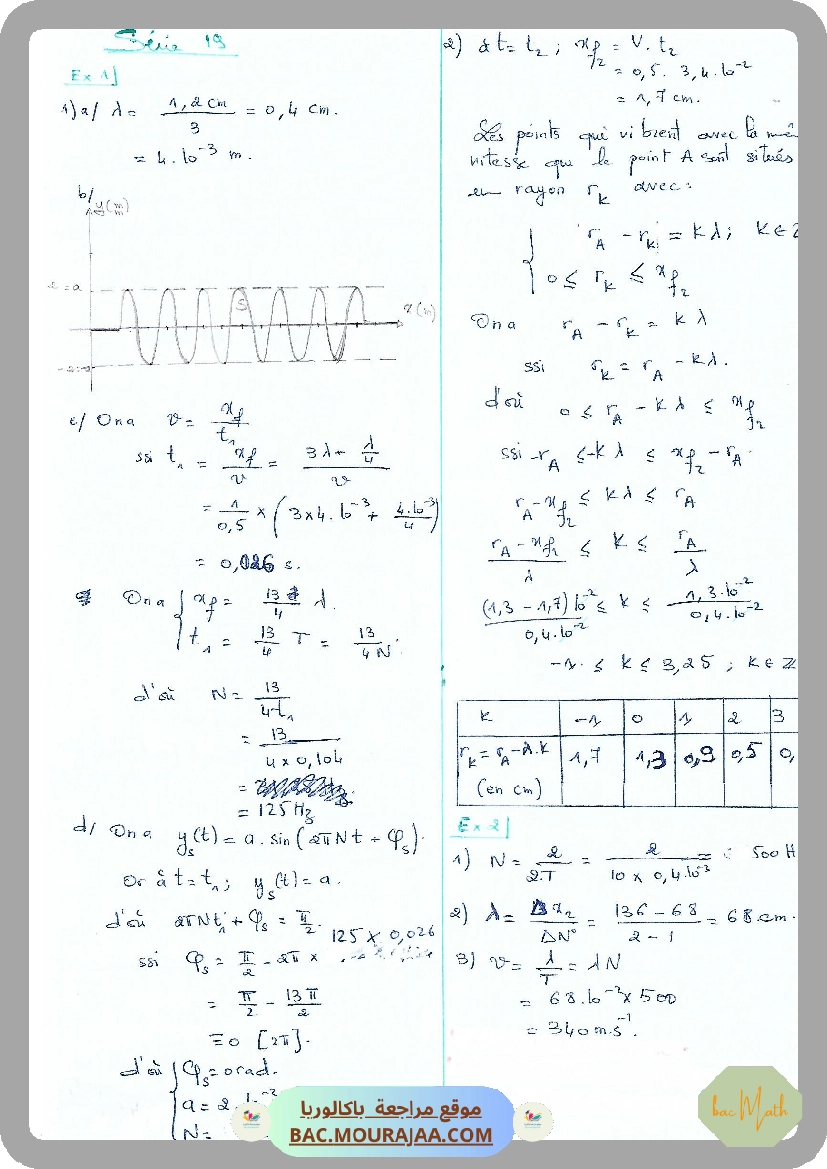 Série 19
Ex 1
1) a/ λ = 1,2 cm / 3 = 0,4 cm.
= 4.10⁻³ m.
b/
y(m)
2 = a
S
x(m)
c/ On a v = xf / t₁
ssi t₁ = xf / v = (3λ + λ/4) / v
= 1/0,5 × (3×4.10⁻³ + 4.10⁻³/4)
= 0,026 s.
On a { xf = 13/4 λ.
t₁ = 13/4 T = 13/4N
d'où N = 13 / 4t₁
= 13 / 4 x 0,104
= 125 Hz
d/ On a yₛ(t) = a. sin(2πNt + φₛ).
Or à t = t₁ ; yₛ(t) = a.
d'où 2πNt₁ + φₛ = π/2.
ssi φₛ = π/2 - 2π × 125 × 0,026
= π/2 - 13π/2
≡ 0 [2π].
d'où { φₛ = 0 rad.
a = 2.10⁻²
N =
2) à t = t₂ ; xf₂ = V. t₂
= 0,5. 3,4.10⁻²
= 1,7 cm.
Les points qui vibrent avec la mê
vitesse que le point A sont situés
en rayon rₖ avec :
{ r_A - rₖ = kλ ; k ∈ Z
0 ≤ rₖ ≤ xf₂
On a r_A - rₖ = kλ
ssi rₖ = r_A - kλ.
d'où 0 ≤ r_A - kλ ≤ xf₂
ssi -r_A ≤ -kλ ≤ xf₂ - r_A.
r_A - xf₂ ≤ kλ ≤ r_A
(r_A - xf₂) / λ ≤ k ≤ r_A / λ
(1,3 - 1,7)10⁻² / 0,4.10⁻² ≤ k ≤ 1,3.10⁻² / 0,4.10⁻²
-1. ≤ k ≤ 3,25 ; k ∈ Z
k -1 0 1 2 3
rₖ = r_A - λ.k (en cm) 1,7 1,3 0,9 0,5 0,
Ex 2
1) N = 2 / 2.T = 2 / 10 x 0,4.10⁻³ = 500 H
2) λ = Δx₂ / ΔN° = 136 - 68 / 2 - 1 = 68 cm.
3) v = λ/T = λN
= 68.10⁻² x 500
= 340 m.s⁻¹.
موقع مراجعة باكالوريا
BAC.MOURAJAA.COM
bac Math